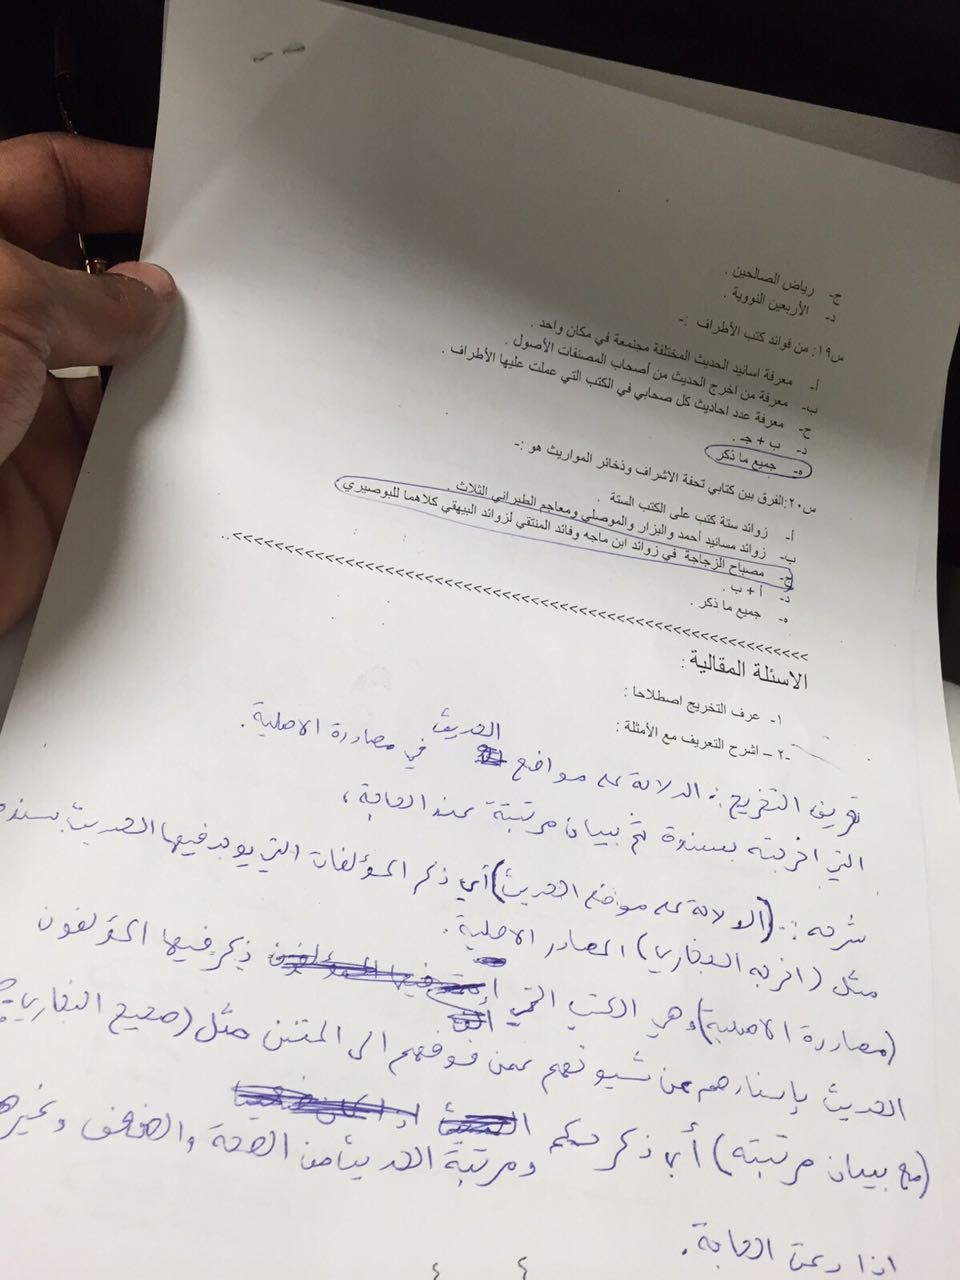 ج- رياض الصالحين .
د- الأربعين النووية .
س١٩: من فوائد كتب الأطراف :-
أ- معرفة اسانيد الحديث المختلفة مجتمعة في مكان واحد .
ب- معرفة من اخرج الحديث من أصحاب المصنفات الأصول .
ج- معرفة عدد احاديث كل صحابي في الكتب التي عملت عليها الأطراف .
د- ب + جـ .
ه- جميع ما ذكر
س٢٠:الفرق بين كتابي تحفة الاشراف وذخائر المواريث هو :-
أ- زوائد ستة كتب على الكتب الستة .
ب- زوائد مسانيد أحمد والبزار والموصلي ومعاجم الطبراني الثلاث .
ج- مصباح الزجاجة في زوائد ابن ماجه وفائد المنتقي لزوائد البيهقي كلاهما للبوصيري
د- أ + ب .
ه- جميع ما ذكر .
>>>>>>>>>>>>>>>>>>>>>>>>>>>>>>>>>>>>>>>>>>>>>>>>>>>>>>>>>>..
الاسئلة المقالية :
١- عرف التخريج اصطلاحا :
-٢ – اشرح التعريف مع الأمثلة :
تعريف التخريج :. الدلالة على مواضع الحديث في مصادرة الاصلية .
التي اخرجته بسندة ثم بيان مرتبتة عند الحاجة ،
شرحه :- (الدلالة على موضع الحديث) أي ذكر المؤلفات التي يوجد فيها الحديث بسنده
مثل (اخرجه البخاري) المصادر الاصلية .
(مصادرة الاصلية) وهي الكتب التي ذكر فيها المؤلفون
الحديث بإسنادهم عن شيوخهم عمن فوقهم الى المتن مثل (صحيح البخاري)
(مع بيان مرتبته) أي ذكر حكم ومرتبة الحديث من الصحة والضعف وغيرها
اذا دعت الحاجة .
٤ ٤